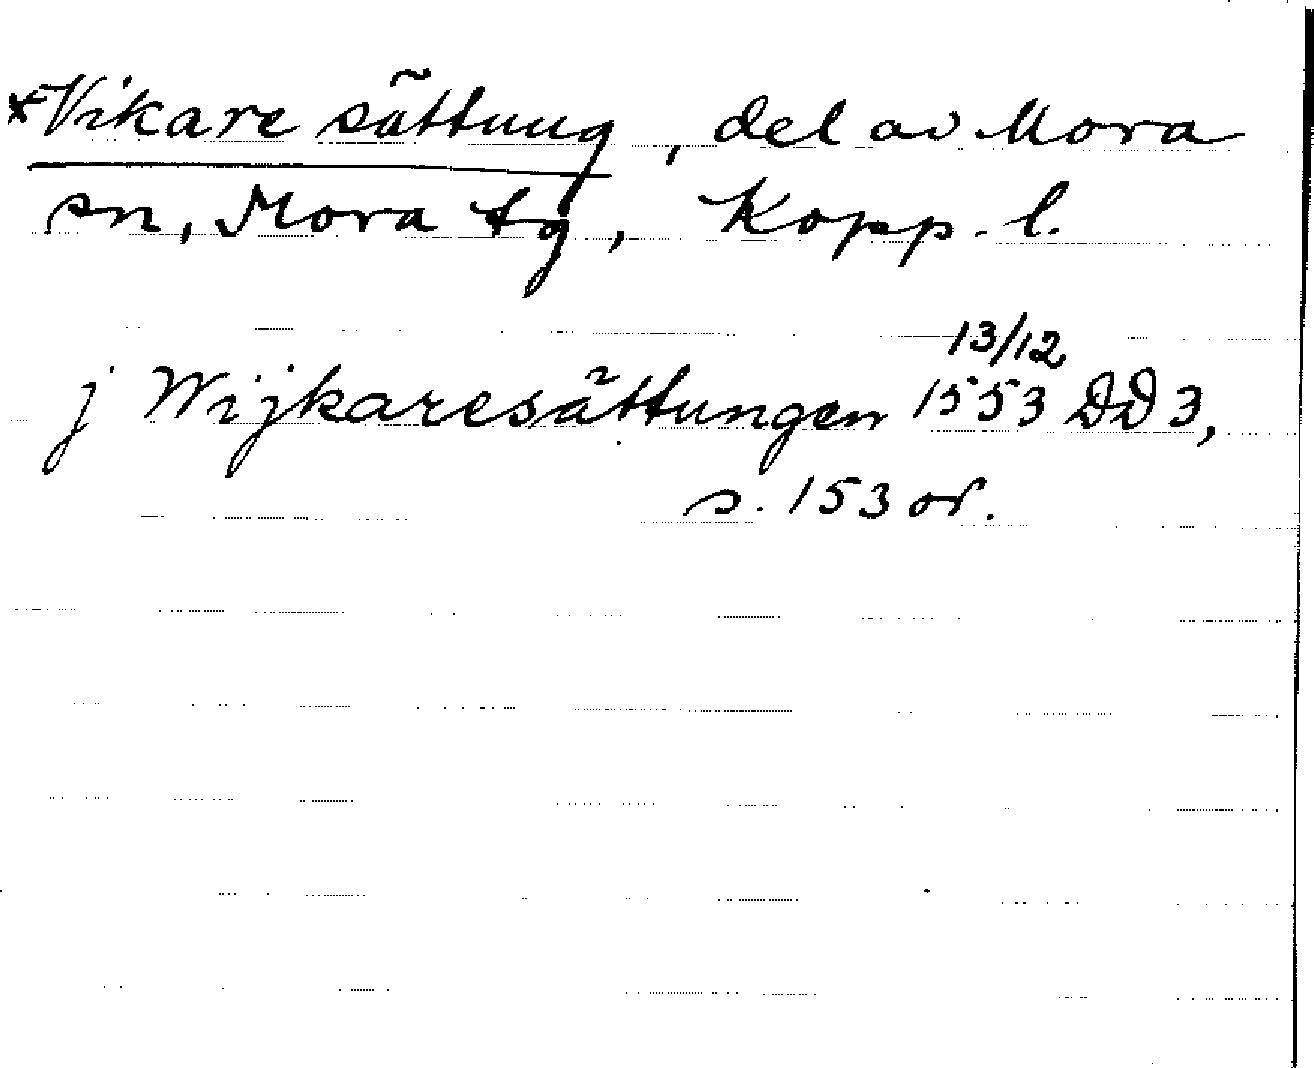 *Vikare sättung, del av Mora
sn, Mora tg, Kopp. l.
13/12
j Wijkaresättungen 1553 DD 3,
s. 153 or.